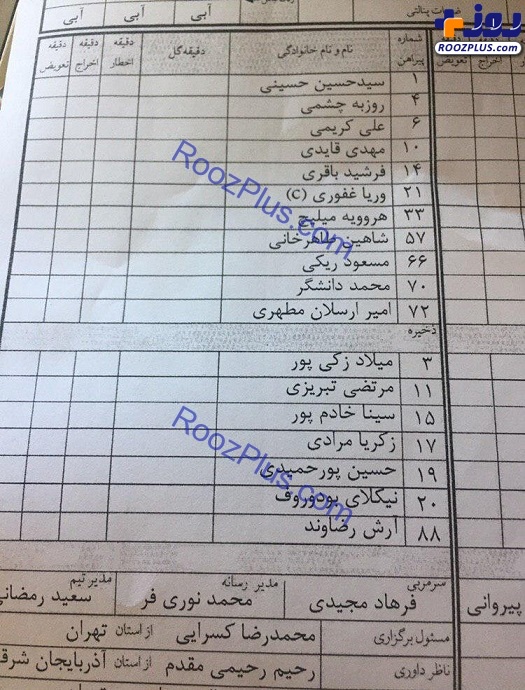 روز
ROOZPLUS.COM
ضربات پنالتی
آبی آبی آبی
شماره پیراهن نام و نام خانوادگی دقیقه گل دقیقه اخطار دقیقه اخراج دقیقه تعویض
۱ سیدحسین حسینی
۴ روزبه چشمی
۶ علی کریمی
۱۰ مهدی قایدی
۱۴ فرشید باقری
۲۱ وریا غفوری (C)
۳۳ هروویه میلیچ
۵۷ شاهین طاهرخانی
۶۶ مسعود ریگی
۷۰ محمد دانشگر
۷۲ امیر ارسلان مطهری
ذخیره
۳ میلاد زکی پور
۱۱ مرتضی تبریزی
۱۵ سینا خادم پور
۱۷ زکریا مرادی
۱۹ حسین پورحمیدی
۲۰ نیکلای بودوروف
۸۸ آرش رضاوند
سرمربی فرهاد مجیدی مدیر رسانه محمد نوری فر مدیر تیم سعید رمضانی
پیروانی
مسئول برگزاری محمدرضا کسرایی از استان تهران
ناظر داوری رحیم رحیمی مقدم از استان آذربایجان شرق
RoozPlus.com
RoozPlus.com